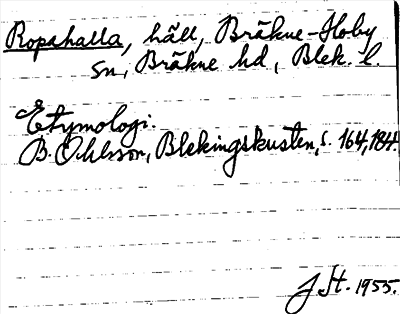 Ropahalla, häll, Bräkne-Hoby
sn, Bräkne hd, Blek. l.
Etymologi:
B. Ohlsson, Blekingskusten, s. 164, 184.
J St. 1955.